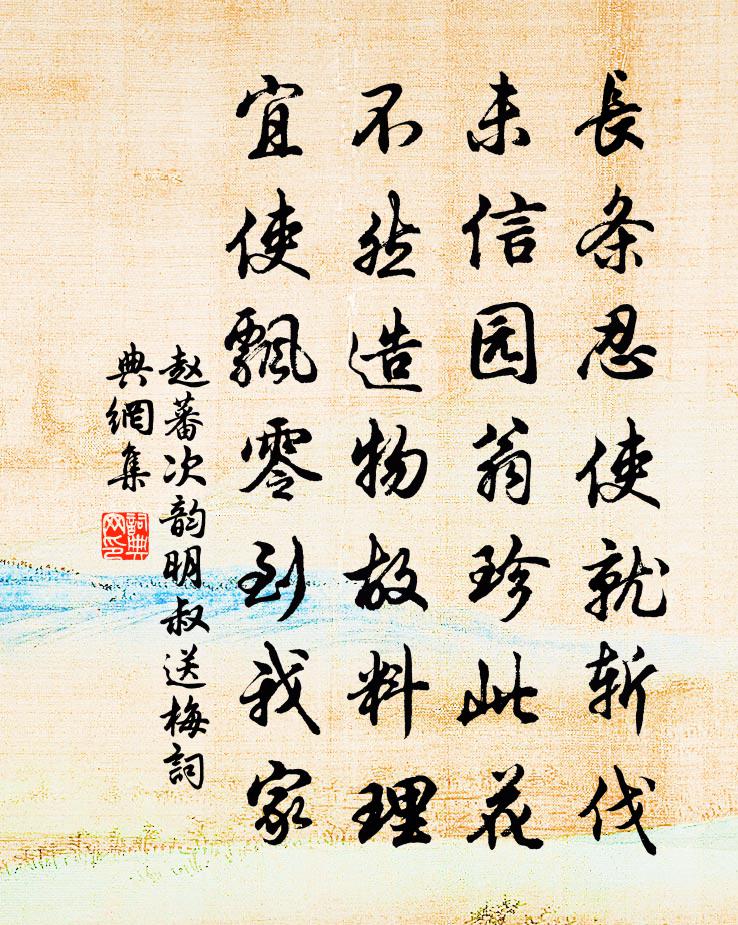 長条忍使就斬伐
未信园翁珍此花
不然造物故料理
宜使飄零到我家
赵蕃次韵明叔送梅詞
典網集
詞典
网印